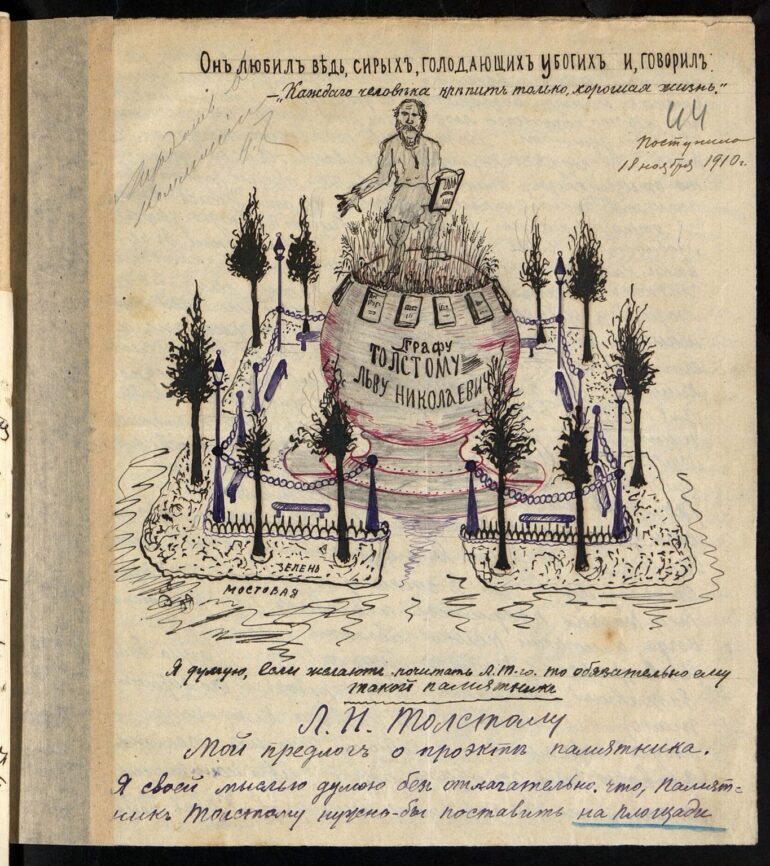 Онъ любилъ вѣдь, сирыхъ, голодающихъ убогихъ и, говорилъ:
— „Каждаго человѣка крѣпитъ только, хорошая жизнь."
44
Поступило
18 ноября 1910 г.
Графу
Толстому
Льву Николаевичу
Зелень
Мостовая
Я думаю, если желаютъ почитать Л. Т-го. то обязательно ему
такой памятникъ
Л. Н. Толстому
Мой предлогъ о проэктѣ памятника.
Я своей мыслью думою без отлагательно. что, памят=
никъ Толстому нужно-бы поставить на площади